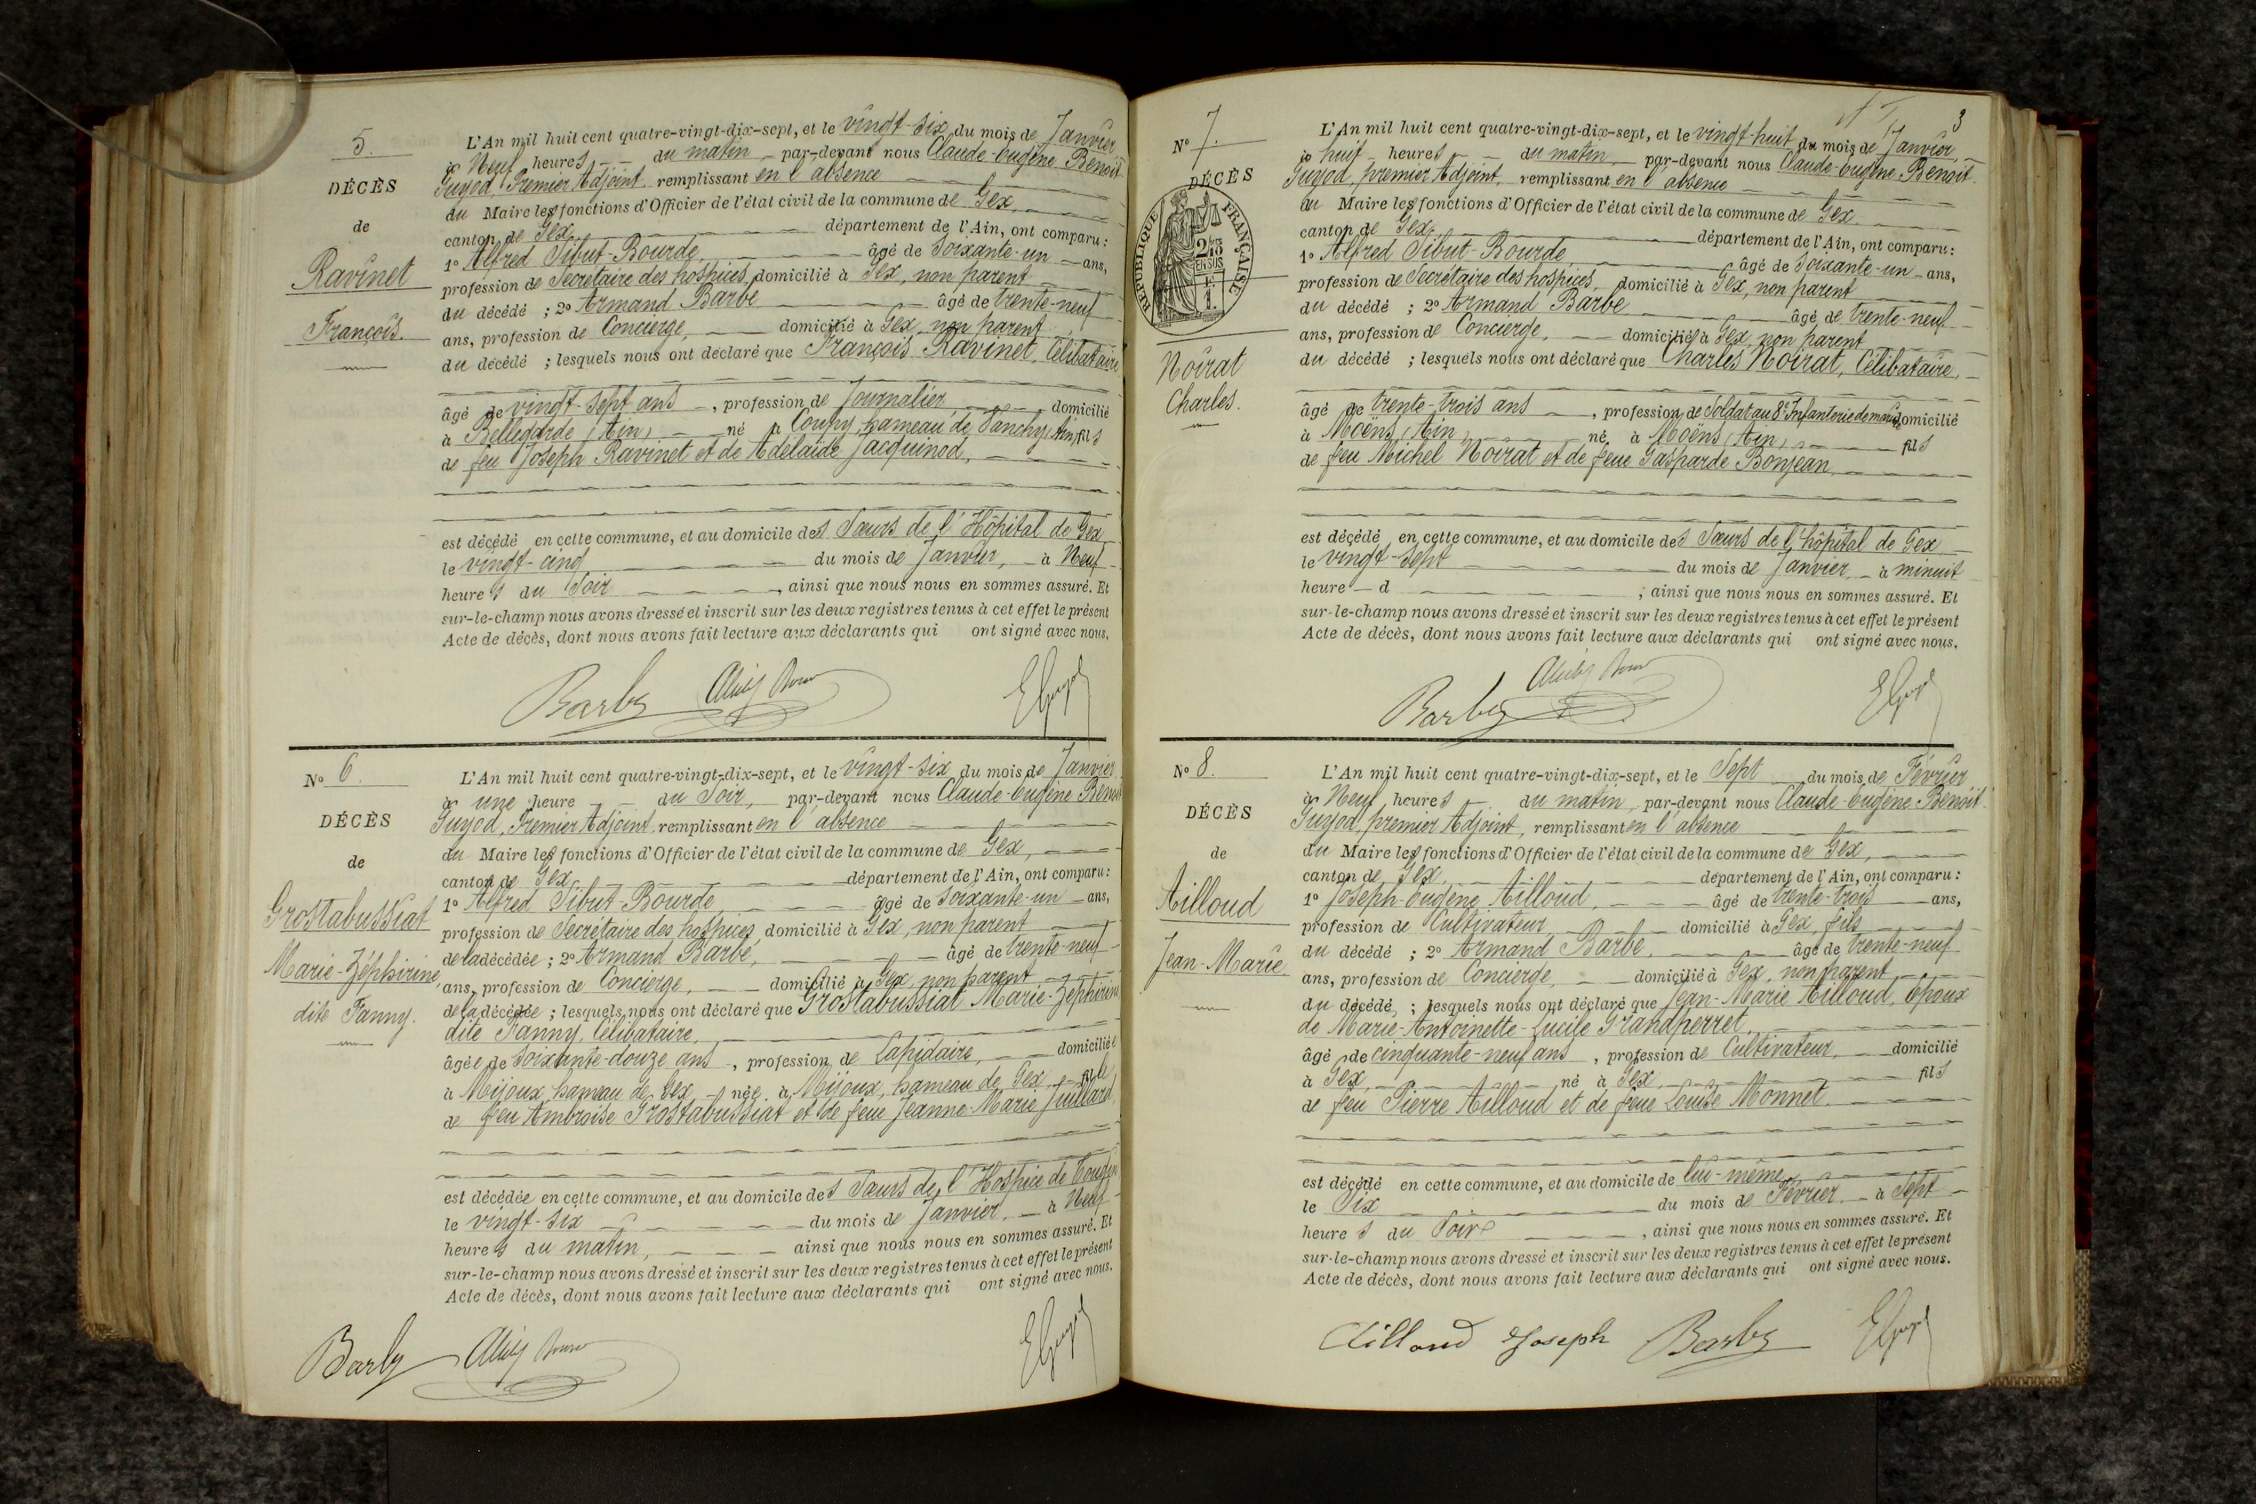 5.
DÉCÈS
de
Ravinet
François.
L'An mil huit cent quatre-vingt-dix-sept, et le vingt-six du mois de Janvier
à Neuf heures du matin par-devant nous Claude-Eugène Benoit
Guyod, Premier Adjoint, remplissant en l'absence
du Maire les fonctions d'Officier de l'état civil de la commune de Gex,
canton de Gex, département de l'Ain, ont comparu :
1º Alfred Sibut-Bourde, âgé de Soixante-un ans,
profession de Secrétaire des hospices, domicilié à Gex, non parent
du décédé ; 2º Armand Barbe âgé de trente-neuf
ans, profession de Concierge, domicilié à Gex, non parent
du décédé ; lesquels nous ont déclaré que François Ravinet, Célibataire
âgé de vingt-sept ans, profession de Journalier, domicilié
à Bellegarde (Ain), né à Coupy, hameau de Vanchy, (Ain) fils
de feu Joseph Ravinet et de Adélaïde Jacquinod,
est décédé en cette commune, et au domicile des Sœurs de l'Hôpital de Gex
le vingt-cinq du mois de Janvier, à Neuf
heures du Soir, ainsi que nous nous en sommes assuré. Et
sur-le-champ nous avons dressé et inscrit sur les deux registres tenus à cet effet le présent
Acte de décès, dont nous avons fait lecture aux déclarants qui ont signé avec nous.
Barbe
EGuyod
Nº 6.
DÉCÈS
de
Grostabussiat
Marie-Zéphirine,
dite Fanny.
L'An mil huit cent quatre-vingt-dix-sept, et le vingt-six du mois de Janvier
à une heure du Soir, par-devant nous Claude-Eugène Benoit
Guyod, Premier Adjoint, remplissant en l'absence
du Maire les fonctions d'Officier de l'état civil de la commune de Gex,
canton de Gex, département de l'Ain, ont comparu :
1º Alfred Sibut-Bourde âgé de Soixante-un ans,
profession de Secrétaire des hospices, domicilié à Gex, non parent
de la décédée ; 2º Armand Barbe, âgé de trente-neuf
ans, profession de Concierge, domicilié à Gex, non parent
de la décédée ; lesquels nous ont déclaré que Grostabussiat Marie-Zéphirine
dite Fanny, Célibataire,
âgée de Soixante-douze ans, profession de Lapidaire, domiciliée
à Mijoux, hameau de Gex, née à Mijoux, hameau de Gex, fille
de feu Ambroise Grostabussiat et de feue Jeanne-Marie Juillard,
est décédée en cette commune, et au domicile des Sœurs de l'Hospice de Tougin
le vingt-six du mois de Janvier, à Neuf
heures du matin, ainsi que nous nous en sommes assuré. Et
sur-le-champ nous avons dressé et inscrit sur les deux registres tenus à cet effet le présent
Acte de décès, dont nous avons fait lecture aux déclarants qui ont signé avec nous.
Barbe
EGuyod
3
Nº 7.
DÉCÈS
RÉPUBLIQUE FRANÇAISE
2/10es
EN SUS
1F
Noirat
Charles.
L'An mil huit cent quatre-vingt-dix-sept, et le vingt-huit du mois de Janvier,
à huit heures du matin, par-devant nous Claude-Eugène Benoit
Guyod, premier Adjoint, remplissant en l'absence
du Maire les fonctions d'Officier de l'état civil de la commune de Gex
canton de Gex, département de l'Ain, ont comparu :
1º Alfred Sibut-Bourde, âgé de Soixante-un ans,
profession de Secrétaire des hospices, domicilié à Gex, non parent
du décédé ; 2º Armand Barbe âgé de trente-neuf
ans, profession de Concierge, domicilié à Gex, non parent
du décédé ; lesquels nous ont déclaré que Charles Noirat, Célibataire,
âgé de trente-trois ans, profession de Soldat au 8e Infanterie de marine, domicilié
à Moëns (Ain), né à Moëns (Ain), fils
de feu Michel Noirat et de feue Gasparde Bonjean,
est décédé en cette commune, et au domicile des Sœurs de l'hôpital de Gex
le vingt-sept du mois de Janvier, à minuit
heure d ; ainsi que nous nous en sommes assuré. Et
sur-le-champ nous avons dressé et inscrit sur les deux registres tenus à cet effet le présent
Acte de décès, dont nous avons fait lecture aux déclarants qui ont signé avec nous.
Barbe
EGuyod
Nº 8.
DÉCÈS
de
Ailloud
Jean-Marie
L'An mil huit cent quatre-vingt-dix-sept, et le Sept du mois de Février
à Neuf heures du matin, par-devant nous Claude-Eugène Benoit
Guyod, premier Adjoint, remplissant en l'absence
du Maire les fonctions d'Officier de l'état civil de la commune de Gex,
canton de Gex, département de l'Ain, ont comparu :
1º Joseph-Eugène Ailloud, âgé de trente-trois ans,
profession de Cultivateur domicilié à Gex, fils
du décédé ; 2º Armand Barbe, âgé de trente-neuf
ans, profession de Concierge, domicilié à Gex, non parent
du décédé ; lesquels nous ont déclaré que Jean-Marie Ailloud, Époux
de Marie-Antoinette-Lucile Grandperret,
âgé de cinquante-neuf ans, profession de Cultivateur, domicilié
à Gex, né à Gex, fils
de feu Pierre Ailloud et de feue Louise Monnet.
est décédé en cette commune, et au domicile de lui-même
le Six du mois de Février à Sept
heures du Soir, ainsi que nous nous en sommes assuré. Et
sur-le-champ nous avons dressé et inscrit sur les deux registres tenus à cet effet le présent
Acte de décès, dont nous avons fait lecture aux déclarants qui ont signé avec nous.
Ailloud Joseph Barbe EGuyod